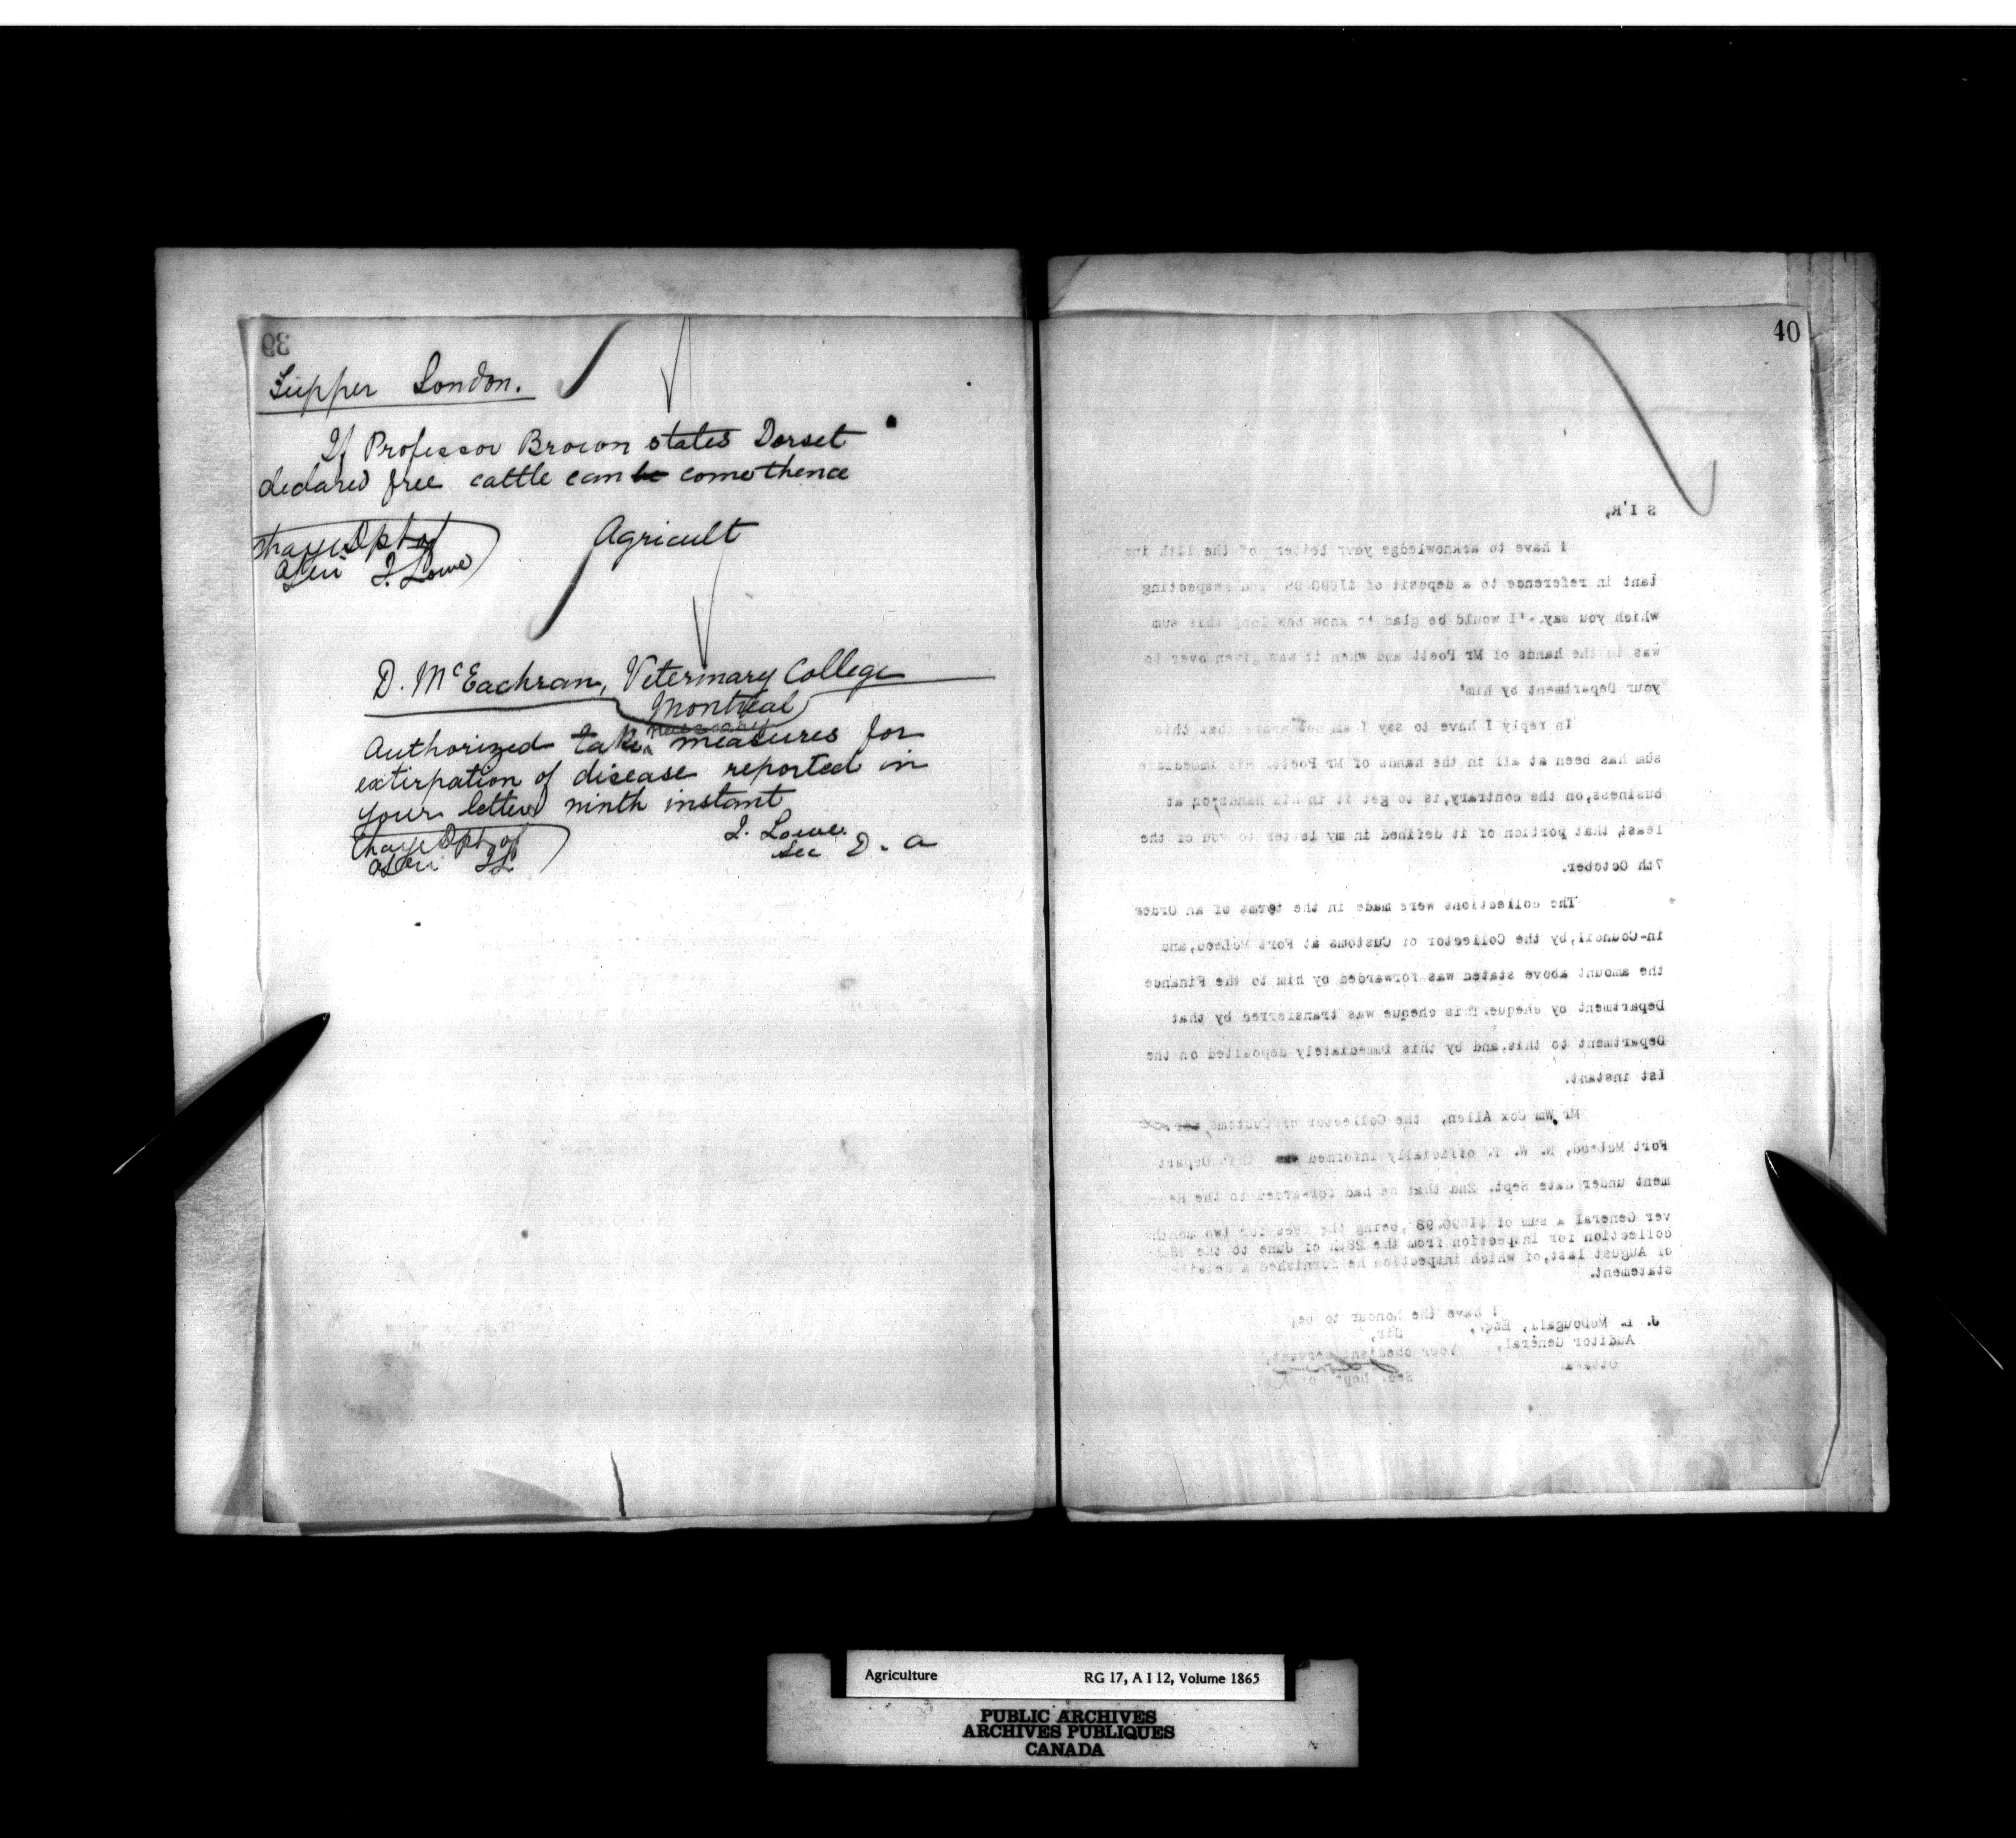 39
Tupper London.
If Professor Brown states Dorset
declared free cattle can be come thence
Agricult
Charge Dpt of
Agri J. Lowe
D. McEachran, Veterinary College
Montreal
necessary
Authorized take measures for
extirpation of disease reported in
your letter ninth instant
J. Lowe.
Sec D. A
Charge Dpt of
Agri JL
40
S I R,
I have to acknowledge your letter of the 11th ins
tant in reference to a deposit of $1690.98 and respecting
which you say.-'I would be glad to know how long this sum
was in the hands of Mr Poett and when it was given over to
your Department by him'
In reply I have to say I am not aware that this
sum has been at all in the hands of Mr Poett. His immediate
business, on the contrary, is to get it in his hands, or, at
least, that portion of it defined in my letter to you of the
7th October.
The collections were made in the terms of an Order
in-Council, by the Collector of Customs at Fort McLeod, and
the amount above stated was forwarded by him to the Finance
Department by cheque. This cheque was transferred by that
Department to this, and by this immediately deposited on the
1st instant.
Mr Wm Cox Allen, the Collector of Customs,
Fort McLeod, N. W. T. officially informed this Depart
ment under date Sept. 2nd that he had forwarded to the Recei
ver General a sum of $1690.98, being the two months
collection for inspection from the 28th of June to the
of August last, of which inspection he furnished a detailed
statement.
I have the honour to be,
Sir,
Your obedient servant,
Sec. Dept. of Agr
J. L. McDougall, Esq.,
Auditor General,
Ottawa
Agriculture RG 17, A I 12, Volume 1865
PUBLIC ARCHIVES
ARCHIVES PUBLIQUES
CANADA